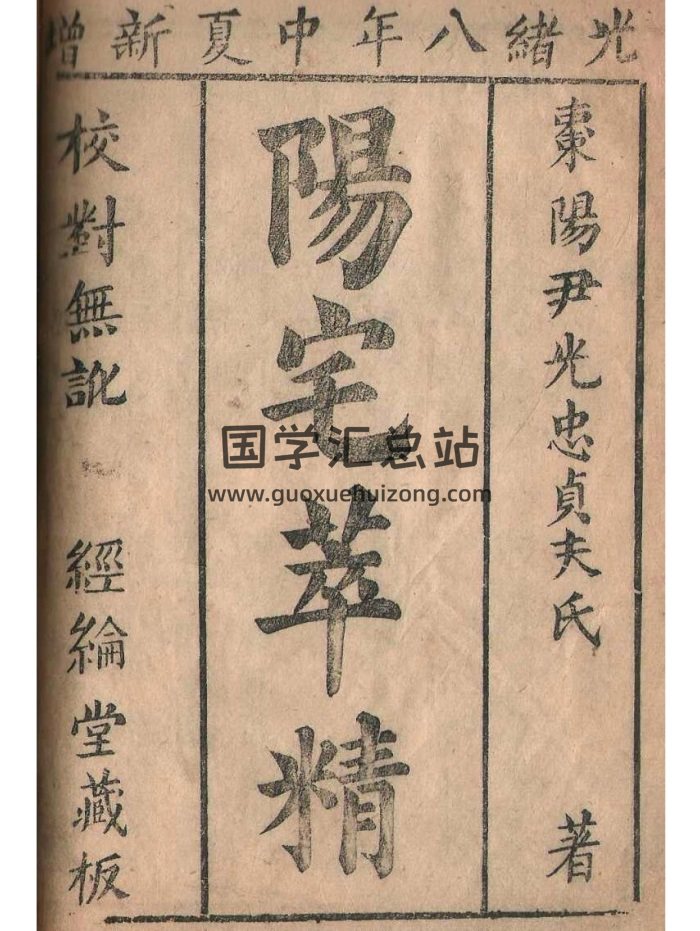 光緒八年中夏新增
棗陽尹光忠貞夫氏 著
陽宅萃精
校對無訛 經綸堂藏板
国学汇总站
www.guoxuehuizong.com